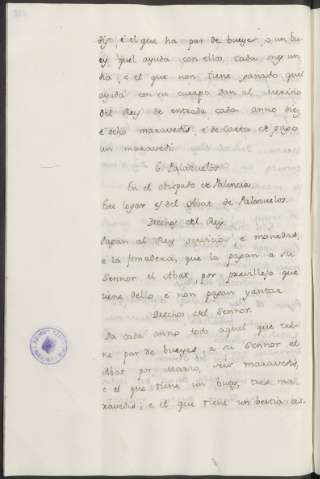 dijo, é el que ha par de bueyes, o un bu
ey, quel ayuda con ellos, cada
ha, é el que non tiene ganado quel
ayuda con su cuerpo. Dan al Merino
del Rey de entrada cada anno diez
é ocho maravedis, é de Carta de pago
un maravedi.
6. Palazuelos.
En el obispado de Palencia.
Este logar es del Abat de Palazuelos.
Derechos del Rey.
Pagan al Rey servicios, é monedas,
é la fonsadera, que la pagan a su
Sennor el Abat por previllejo que
tiene dello, é non pagan yantar.
Derechos del Sennor.
Da cada anno todo aquel que tie-
ne par de bueyes, a su Sennor el
Abat por Marzo, seis maravedis,
é el que tiene un buey, tres mar
ravedis; é el que tiene un bestia as-